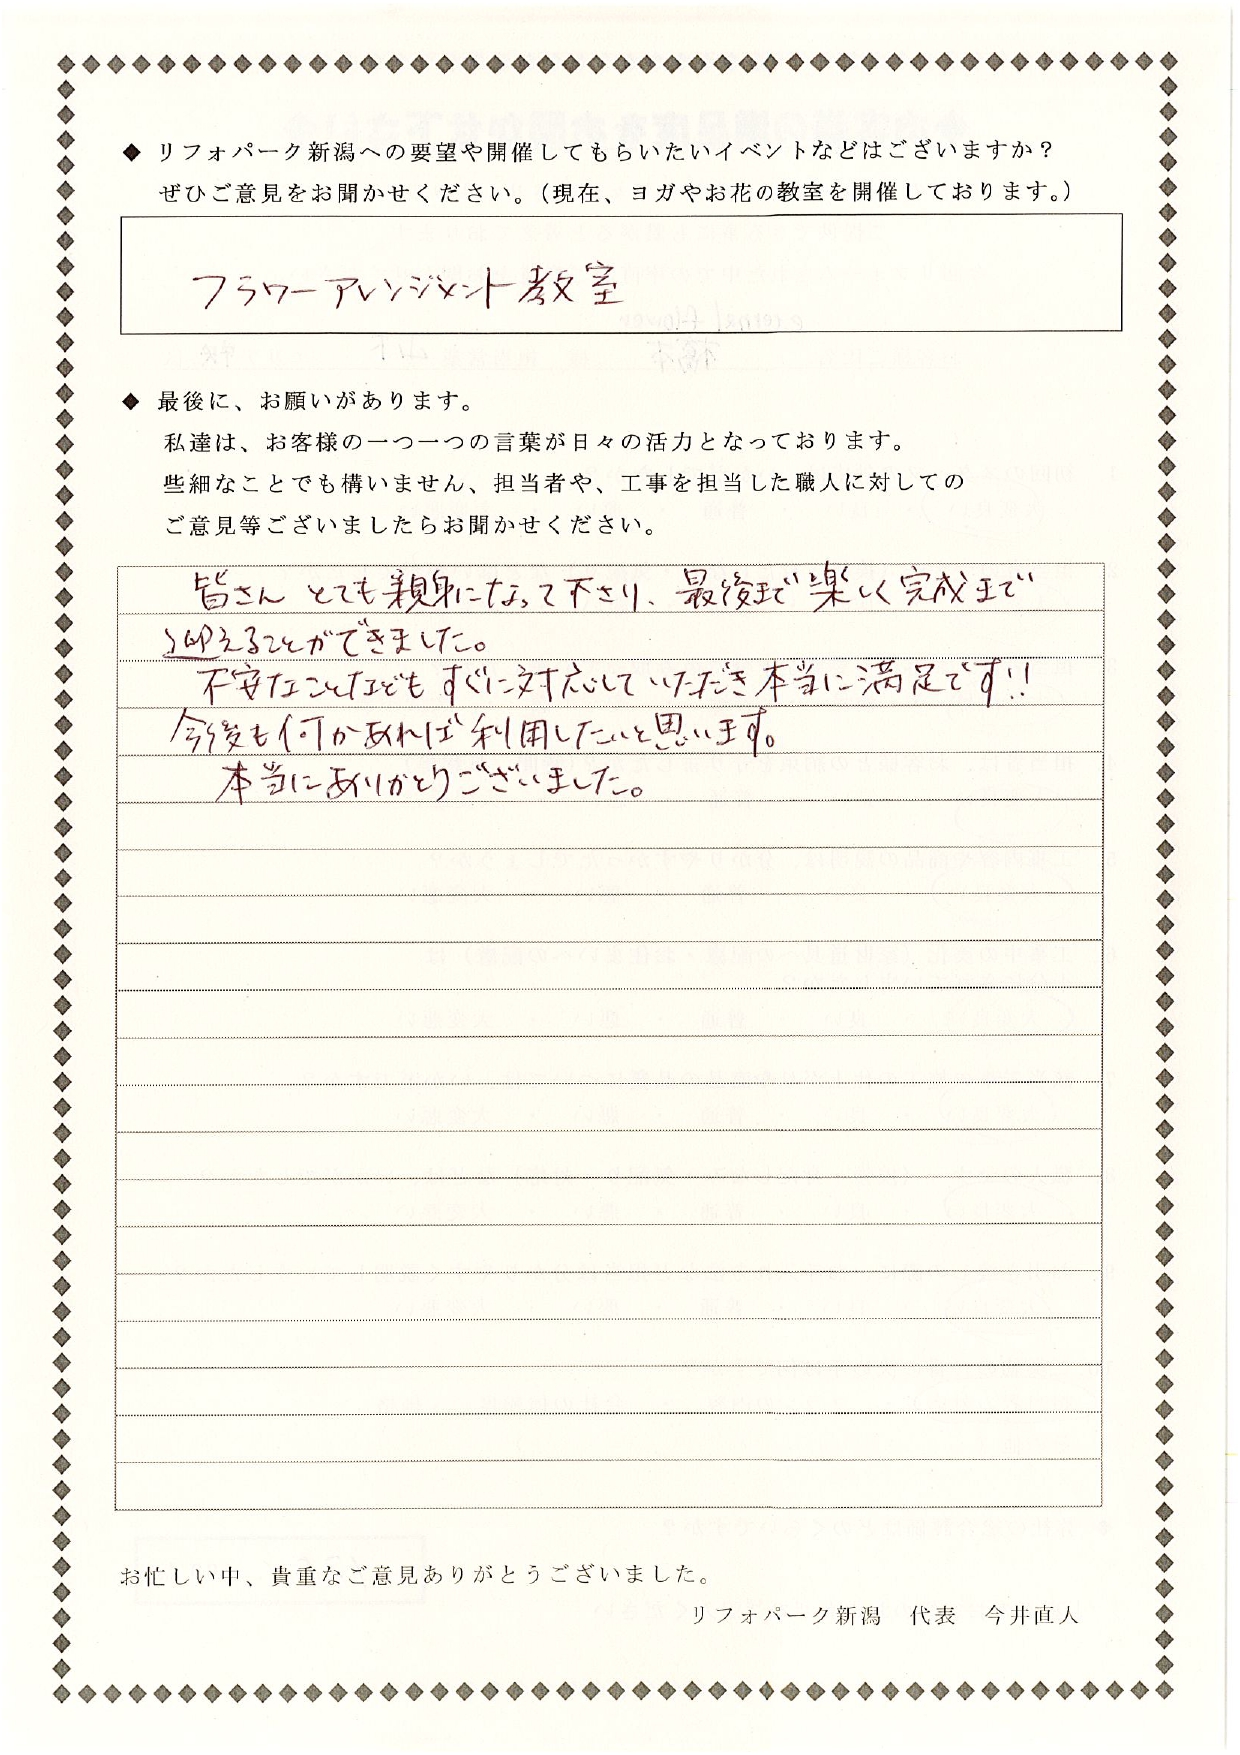 ◆ リフォパーク新潟への要望や開催してもらいたいイベントなどはございますか？
ぜひご意見をお聞かせください。（現在、ヨガやお花の教室を開催しております。）
フラワーアレンジメント教室
◆ 最後に、お願いがあります。
私達は、お客様の一つ一つの言葉が日々の活力となっております。
些細なことでも構いません、担当者や、工事を担当した職人に対しての
ご意見等ございましたらお聞かせください。
皆さん とても親身になって下さり、最後まで楽しく完成まで
迎えることができました。
不安なことなどもすぐに対応していただき本当に満足です!!
今後も何かあれば利用したいと思います。
本当にありがとうございました。
お忙しい中、貴重なご意見ありがとうございました。
リフォパーク新潟　代表　今井直人